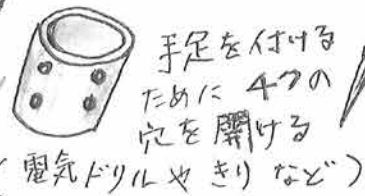 手足を付ける
ために 4つの
穴を開ける
(電気ドリルや きり など)